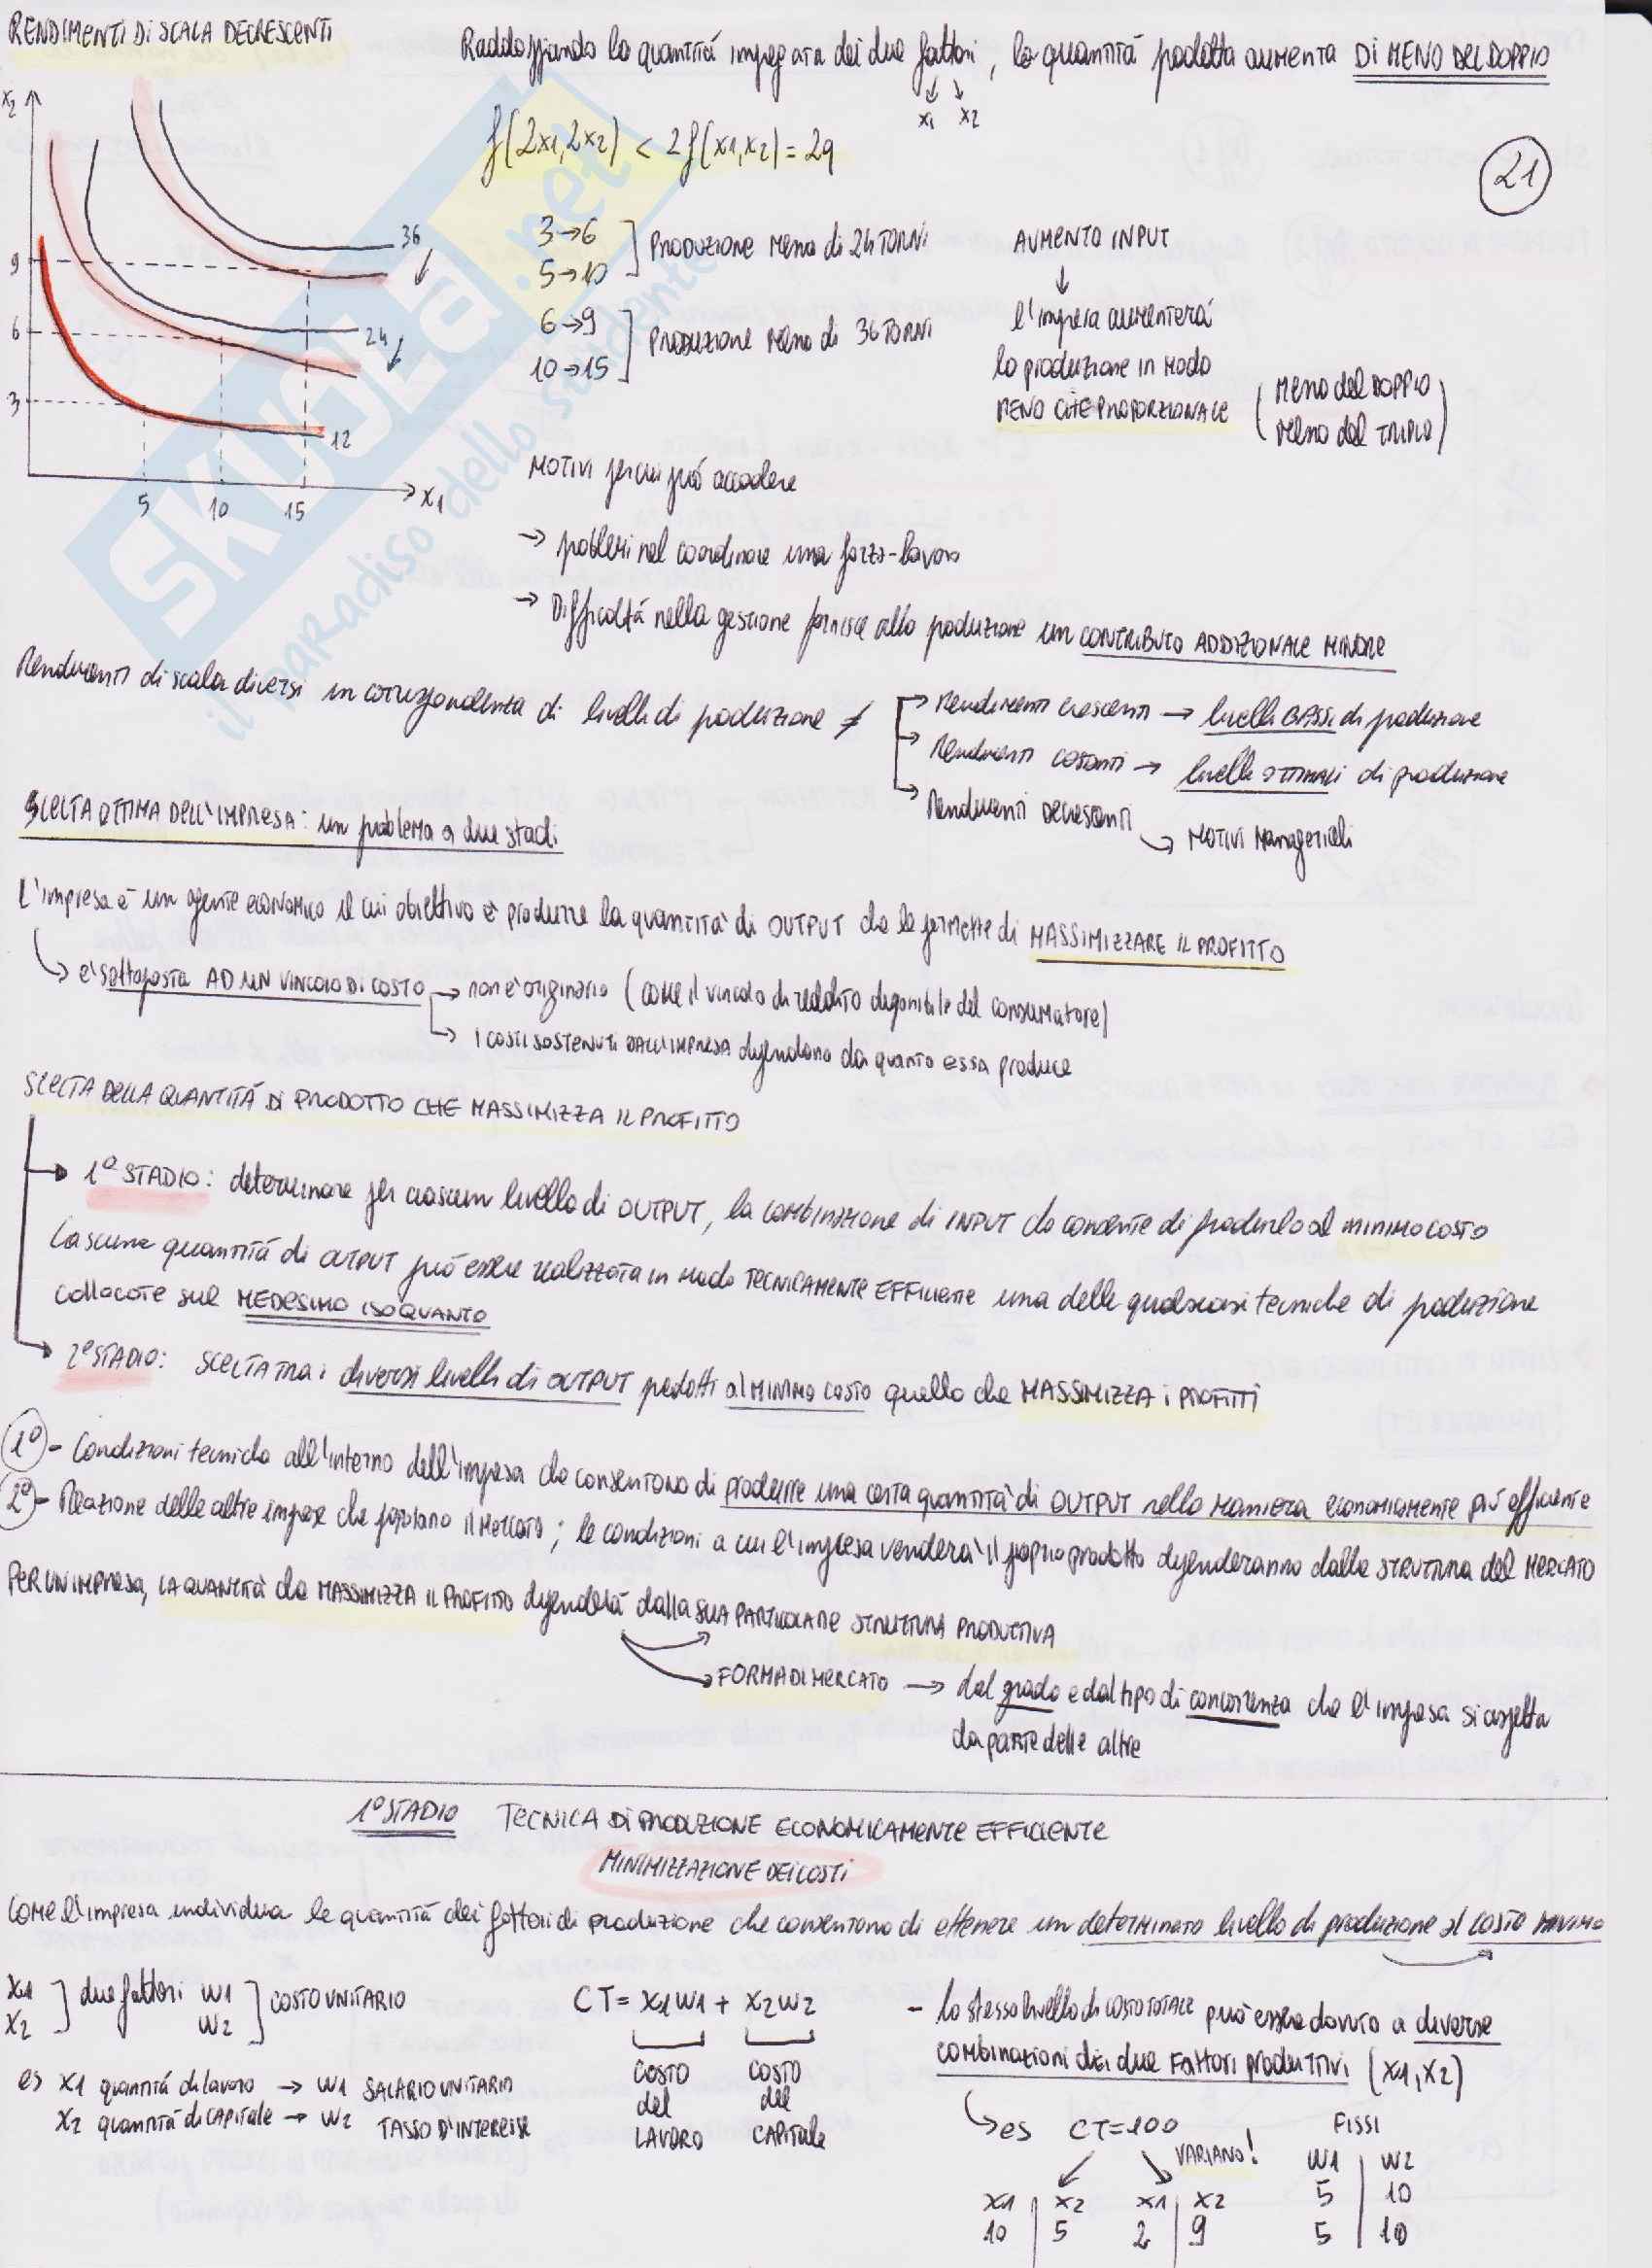 RENDIMENTI DI SCALA DECRESCENTI
Raddoppiando la quantità impiegata dei due fattori, la quantità prodotta aumenta DI MENO DEL DOPPIO
x1 x2
f(2x1,2x2) < 2f(x1,x2) = 2q
21
x2
9
6
3
36
24
12
5 10 15
x1
3→6
5→10
PRODUZIONE Meno di 24 TORNI
6→9
10→15
PRODUZIONE Meno di 36 TORNI
AUMENTO INPUT
l'impresa aumenterà
la produzione in modo
MENO CHE PROPORZIONALE
(Meno del DOPPIO
Meno del TRIPLO)
MOTIVI per cui può accadere
→ problemi nel coordinare una forza-lavoro
→ Difficoltà nella gestione fornisce alla produzione un CONTRIBUTO ADDIZIONALE MINORE
Rendimenti di scala diversi in corrispondenza di livelli di produzione ≠
→ Rendimenti crescenti → livelli BASSI di produzione
→ Rendimenti costanti → livelli OTTIMALI di produzione
→ Rendimenti Decrescenti
→ MOTIVI Manageriali
SCELTA OTTIMA DELL'IMPRESA: un problema a due stadi
L'impresa è un agente economico il cui obiettivo è produrre la quantità di OUTPUT che le permette di MASSIMIZZARE IL PROFITTO
→ è sottoposta AD UN VINCOLO DI COSTO → non è originario (come il vincolo di reddito disponibile del consumatore)
→ I COSTI SOSTENUTI DALL'IMPRESA dipendono da quanto essa produce
SCELTA DELLA QUANTITÀ DI PRODOTTO CHE MASSIMIZZA IL PROFITTO
→ 1º STADIO: determinare per ciascun livello di OUTPUT, la combinazione di INPUT che consente di produrlo al MINIMO COSTO
Ciascuna quantità di OUTPUT può essere realizzata in modo TECNICAMENTE EFFICIENTE una delle qualsiasi tecniche di produzione
collocate sul MEDESIMO ISOQUANTO
→ 2º STADIO: SCELTA TRA i diversi livelli di OUTPUT prodotti al MINIMO COSTO quello che MASSIMIZZA i PROFITTI
1º - Condizioni tecniche all'interno dell'impresa che consentono di produrre una certa quantità di OUTPUT nella maniera economicamente più efficiente
2º - Reazione delle altre imprese che popolano il mercato; le condizioni a cui l'impresa venderà il proprio prodotto dipenderanno dalla STRUTTURA del MERCATO
PER UN IMPRESA, LA QUANTITÀ che MASSIMIZZA IL PROFITTO dipenderà dalla SUA PARTICOLARE STRUTTURA PRODUTTIVA
→ FORMA DI MERCATO → dal grado e dal tipo di concorrenza che l'impresa si aspetta
da parte delle altre
1º STADIO TECNICA DI PRODUZIONE ECONOMICAMENTE EFFICIENTE
MINIMIZZAZIONE DEI COSTI
COME l'impresa individua le quantità dei fattori di produzione che consentono di ottenere un determinato livello di produzione al COSTO MINIMO
x1
x2
] due fattori
w1
w2
] COSTO UNITARIO
es x1 quantità di lavoro → w1 SALARIO UNITARIO
x2 quantità di CAPITALE → w2 TASSO D'INTERESSE
CT = x1w1 + x2w2
COSTO del LAVORO
COSTO del CAPITALE
- lo stesso livello di COSTO TOTALE può essere dovuto a diverse
combinazioni dei due Fattori produttivi (x1,x2)
→ es CT=100
VARIANO!
FISSI
x1 | x2 x1 | x2 w1 | w2
10 | 5 2 | 9 5 | 10
5 | 10
SKUOLA.net
il paradiso dello studente